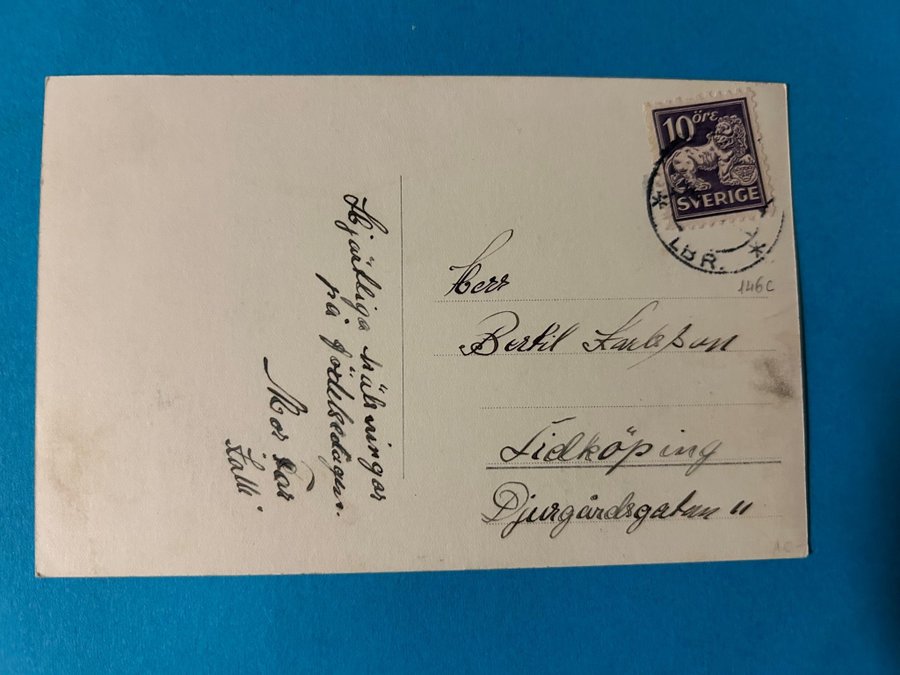 Hjärtliga hälsningar
på födelsedagen.
Mor Far
10 öre
SVERIGE
LBR.
146C
Herr
Bertil Karlsson
Lidköping
Djurgårdsgatan 11